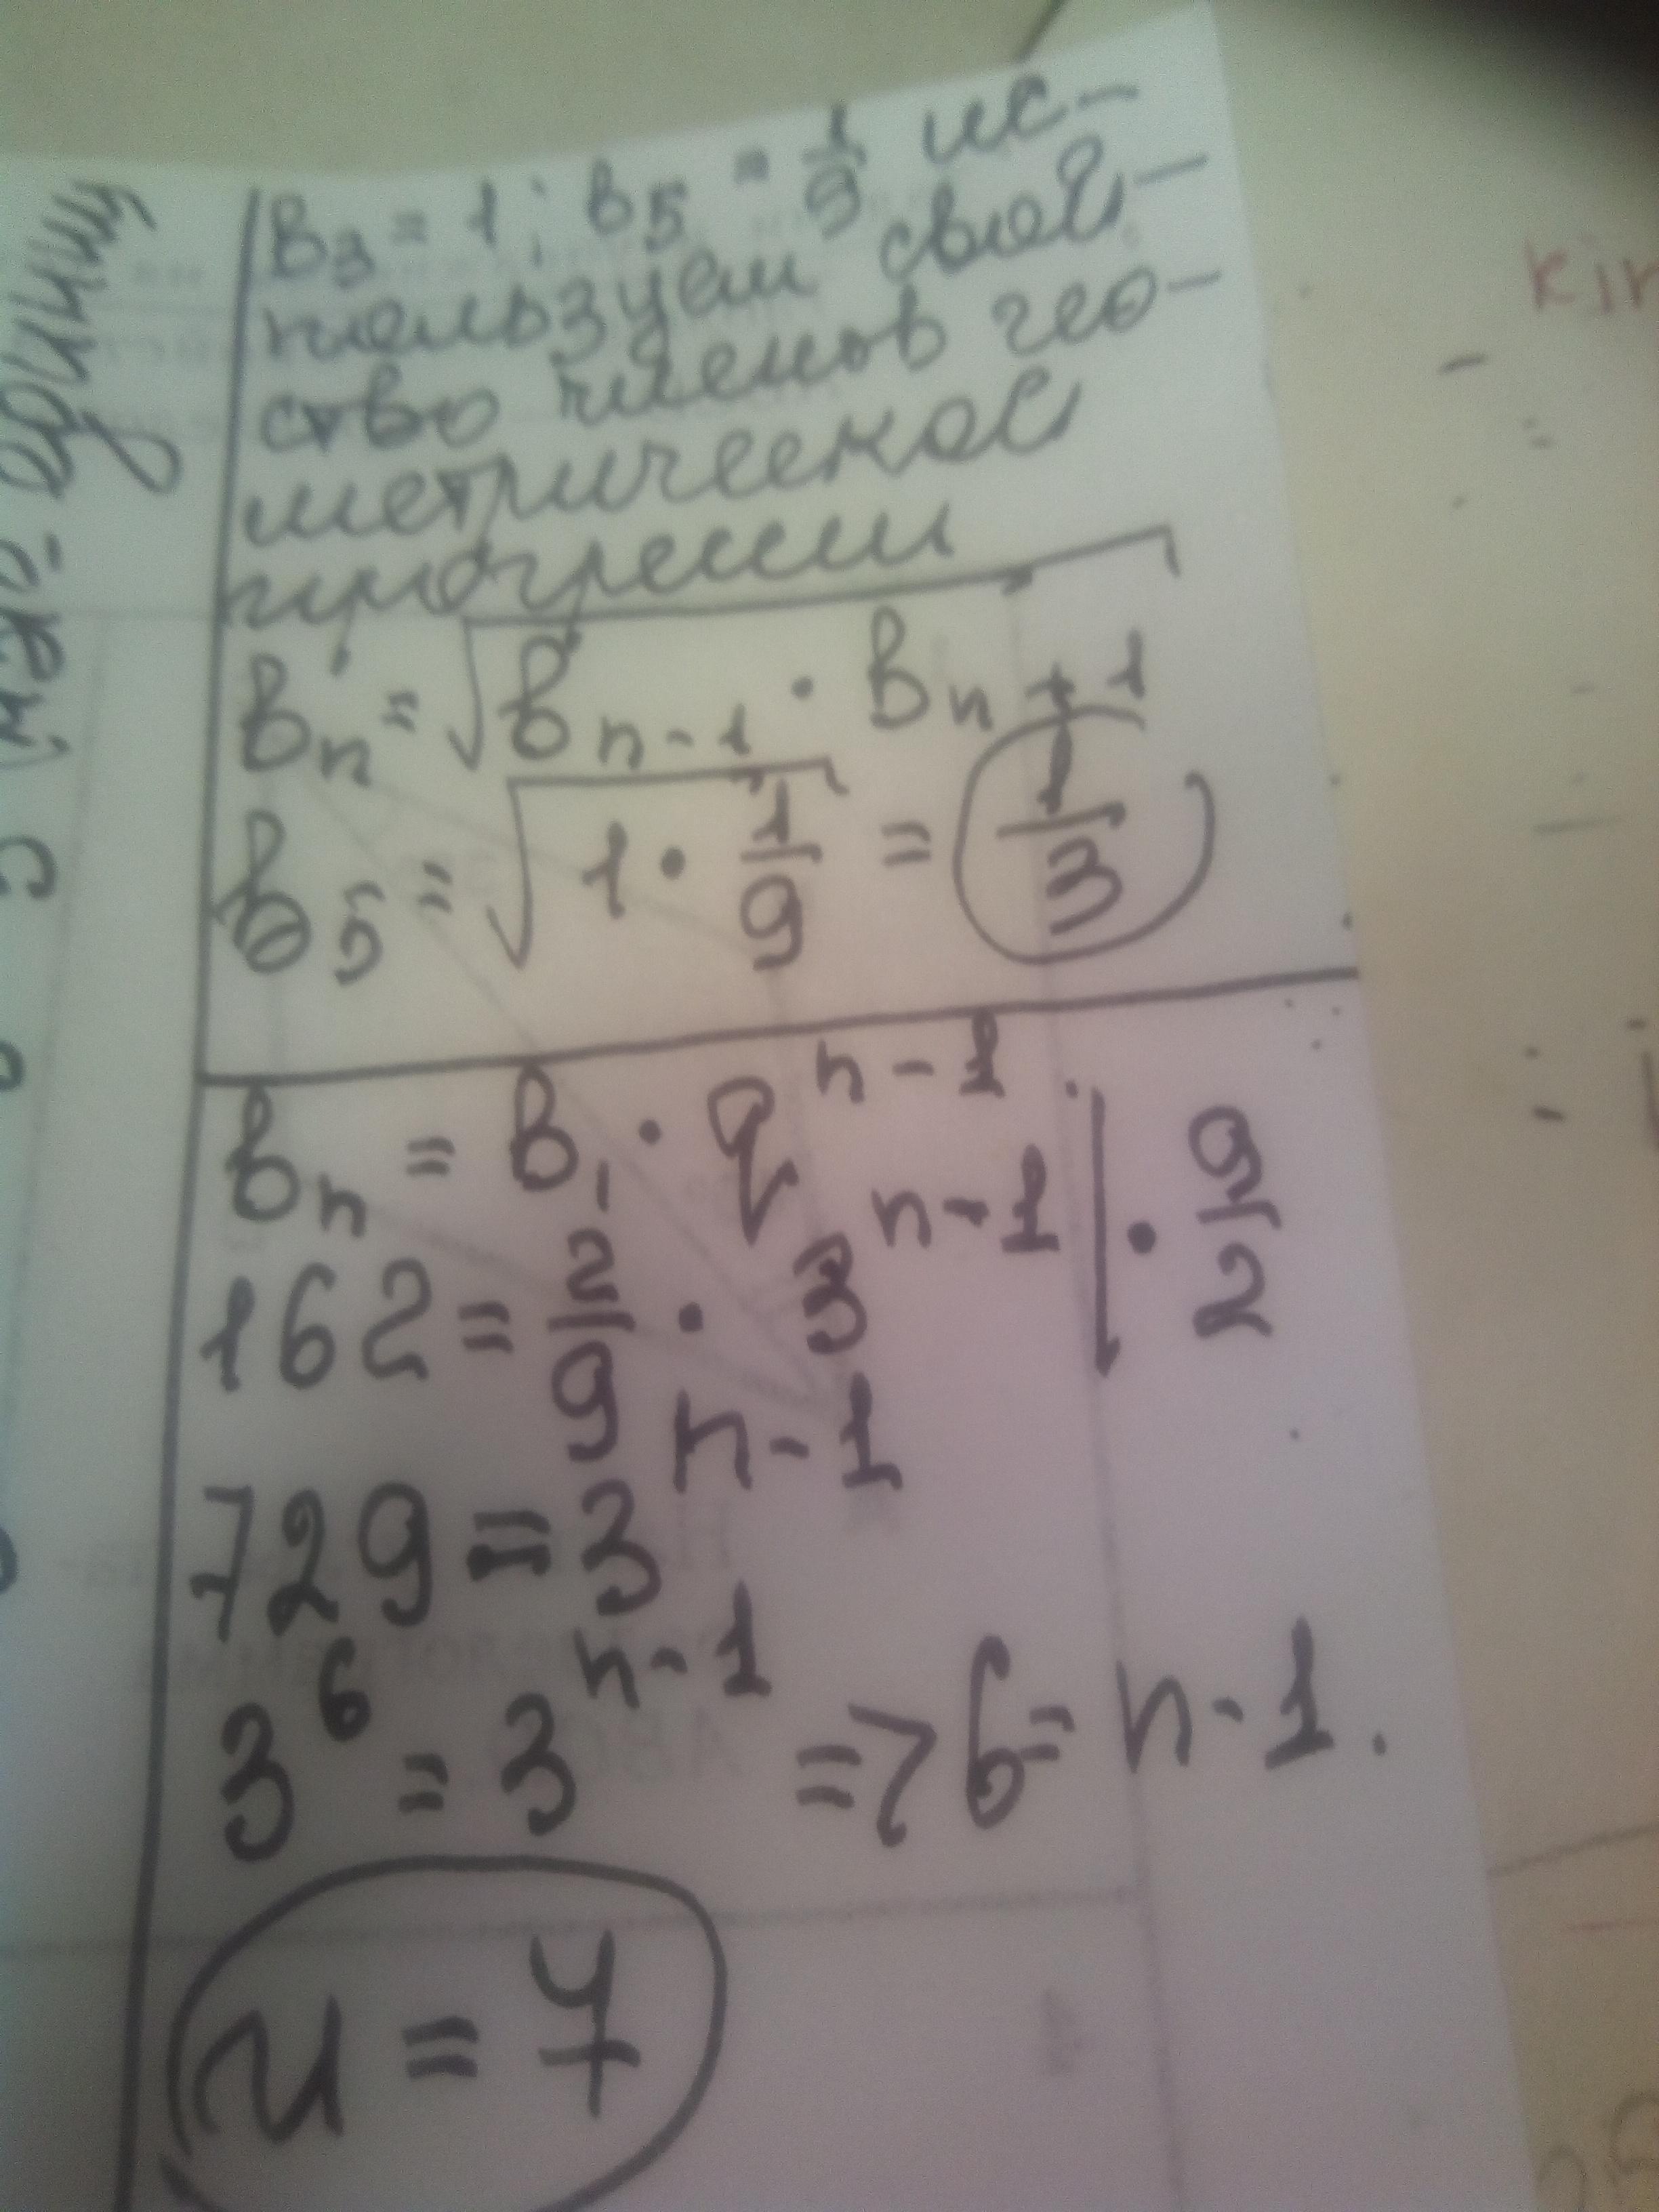 в₃ = 1; в₅ = 1/9 ис-
пользуем свой-
ство членов гео-
метрической
прогрессии
вₙ = √(вₙ₋₁ · вₙ₊₁)
в₅ = √(1 · 1/9) = 1/3
вₙ = в₁ · qⁿ⁻¹
162 = 2/9 · 3ⁿ⁻¹ | · 9/2
729 = 3ⁿ⁻¹
3⁶ = 3ⁿ⁻¹ => 6 = n - 1.
n = 7
един
kin